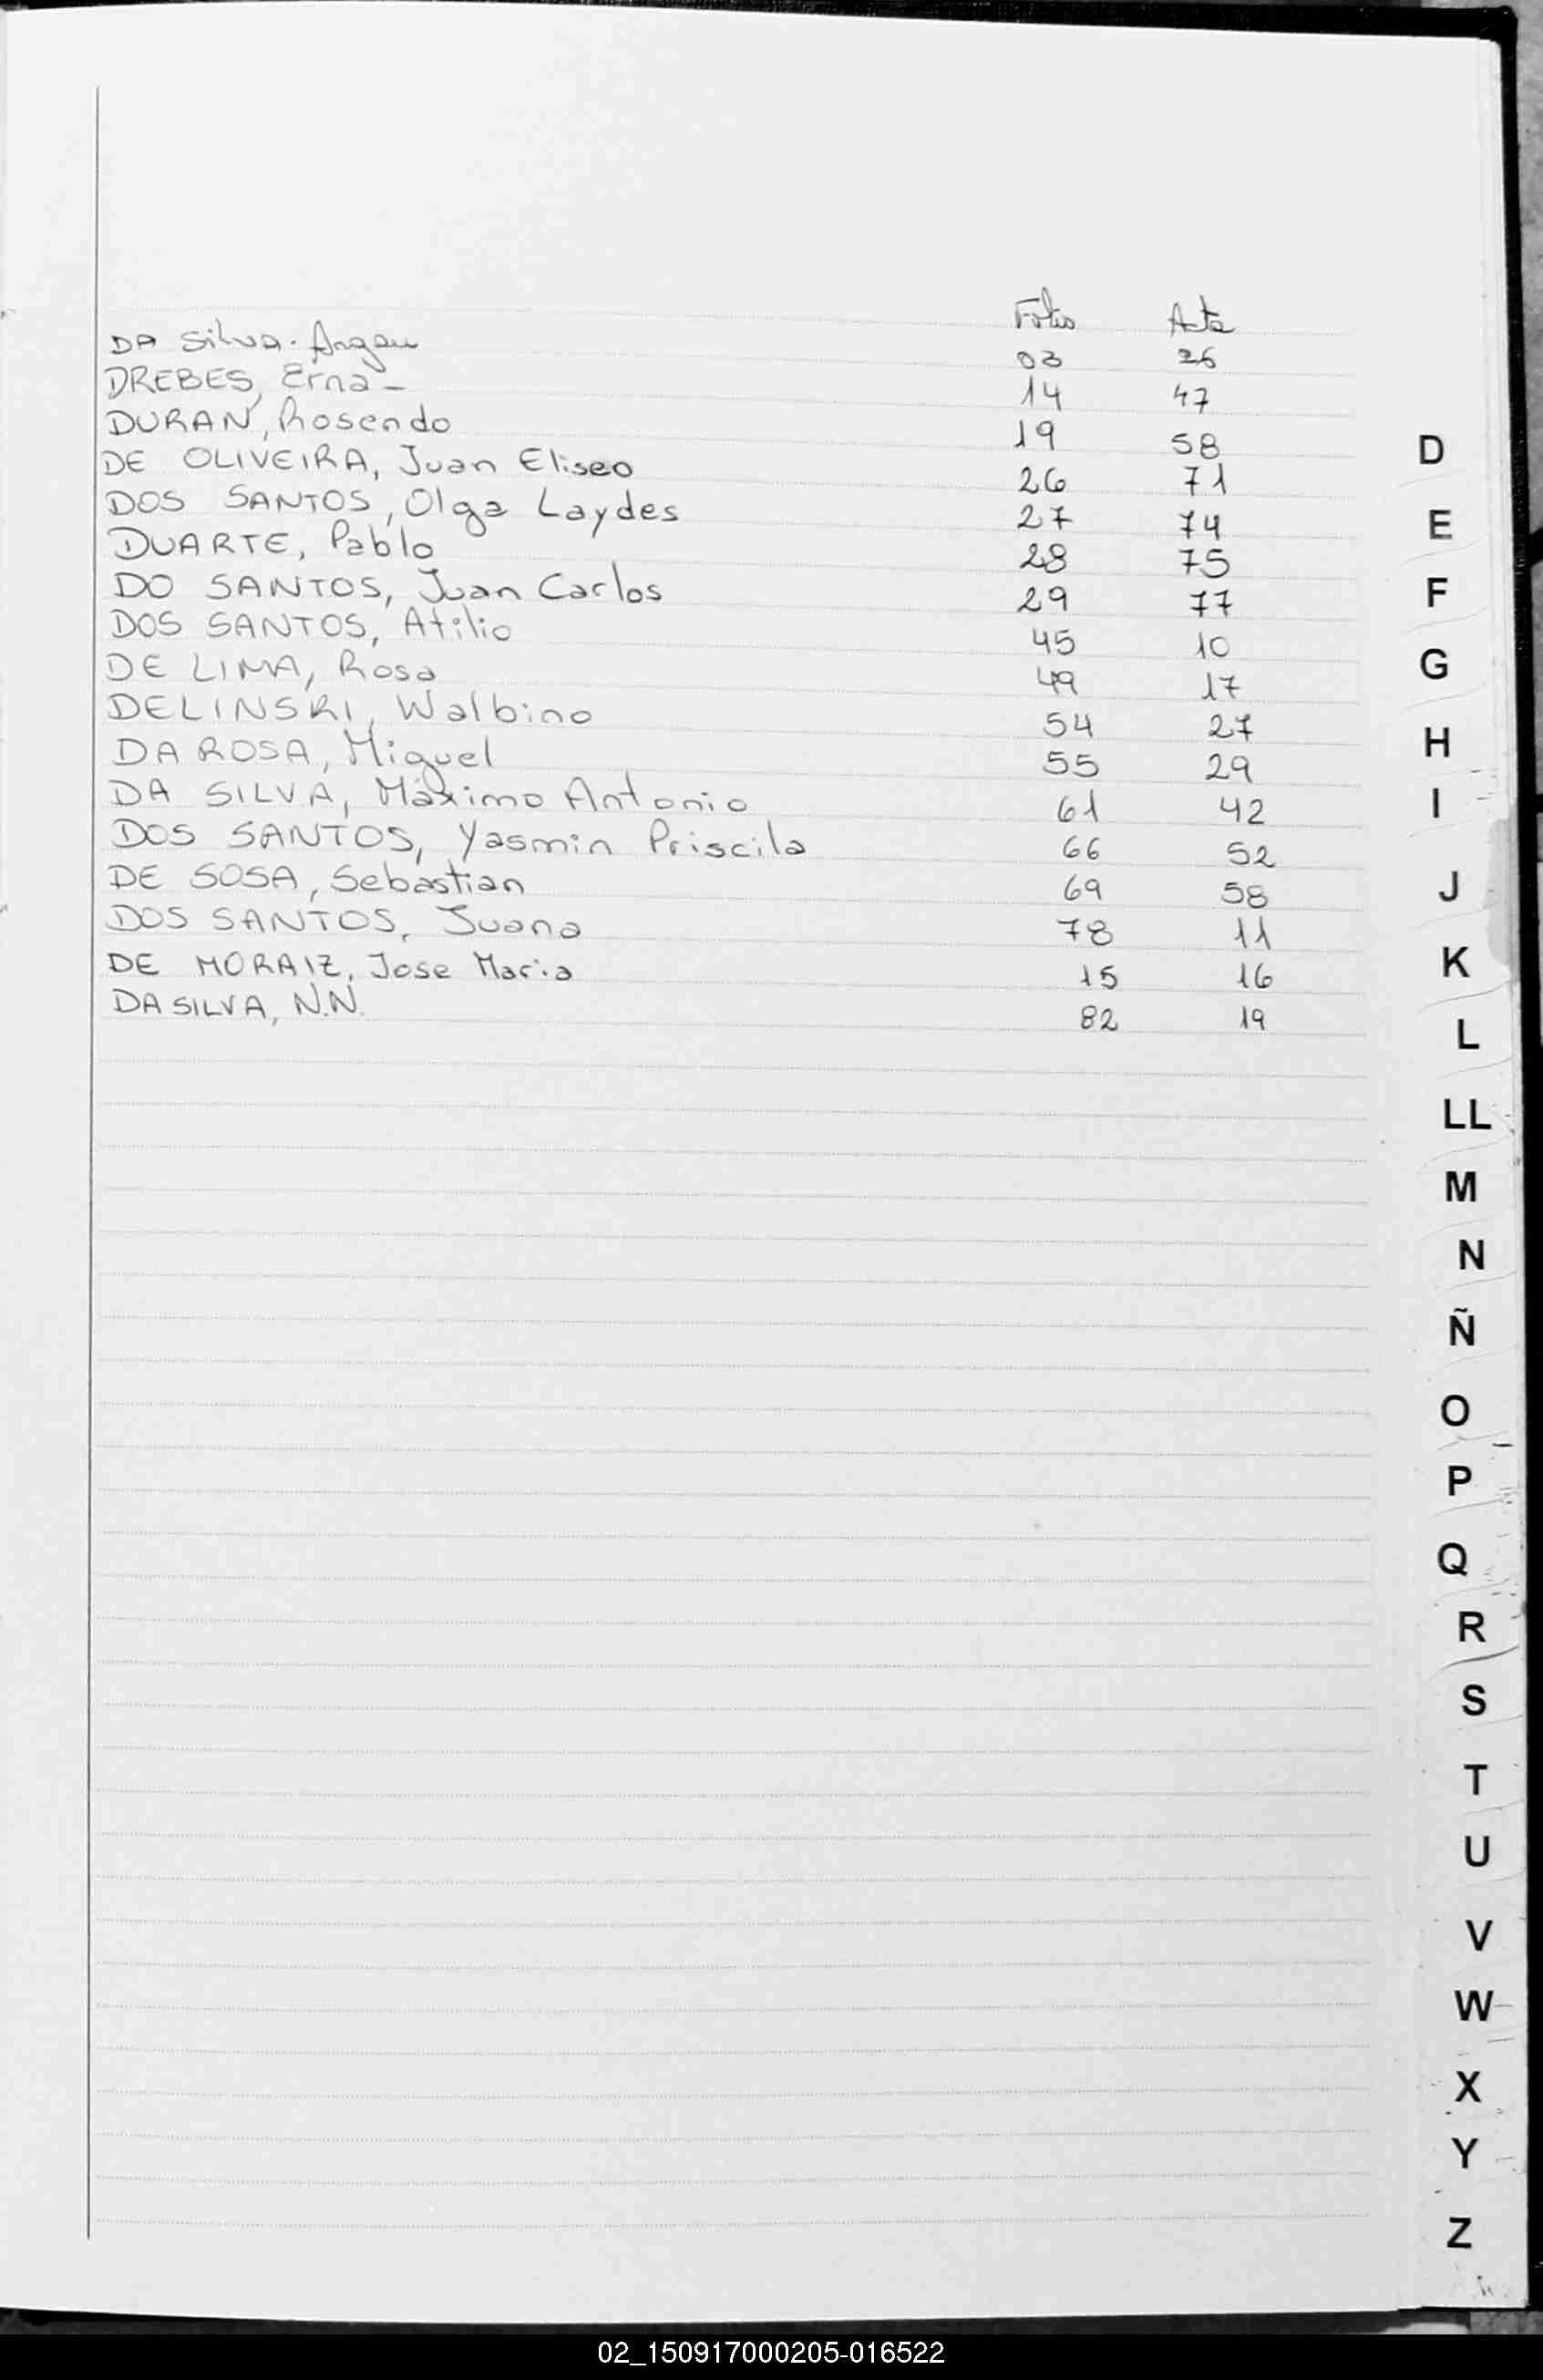 Folio Acta
DA Silva. 03 26
DREBES, Erna - 14 47
DURAN, Rosendo 19 58
DE OLIVEIRA, Juan Eliseo 26 71
DOS SANTOS, Olga Laydes 27 74
DUARTE, Pablo 28 75
DO SANTOS, Juan Carlos 29 77
DOS SANTOS, Atilio 45 10
DE LIMA, Rosa 49 17
DELINSKI, Walbino 54 27
DA ROSA, Miguel 55 29
DA SILVA, Máximo Antonio 61 42
DOS SANTOS, Yasmin Priscila 66 52
DE SOSA, Sebastian 69 58
DOS SANTOS, Juana 78 11
DE MORAIZ, Jose Maria 15 16
DA SILVA, N.N. 82 19
D
E
F
G
H
I
J
K
L
LL
M
N
Ñ
O
P
Q
R
S
T
U
V
W
X
Y
Z
02_150917000205-016522